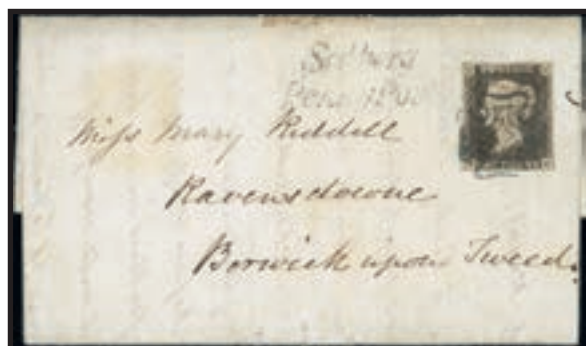 Penny Post
Miss Mary Riddell
Ravensdowne
Berwick upon Tweed.